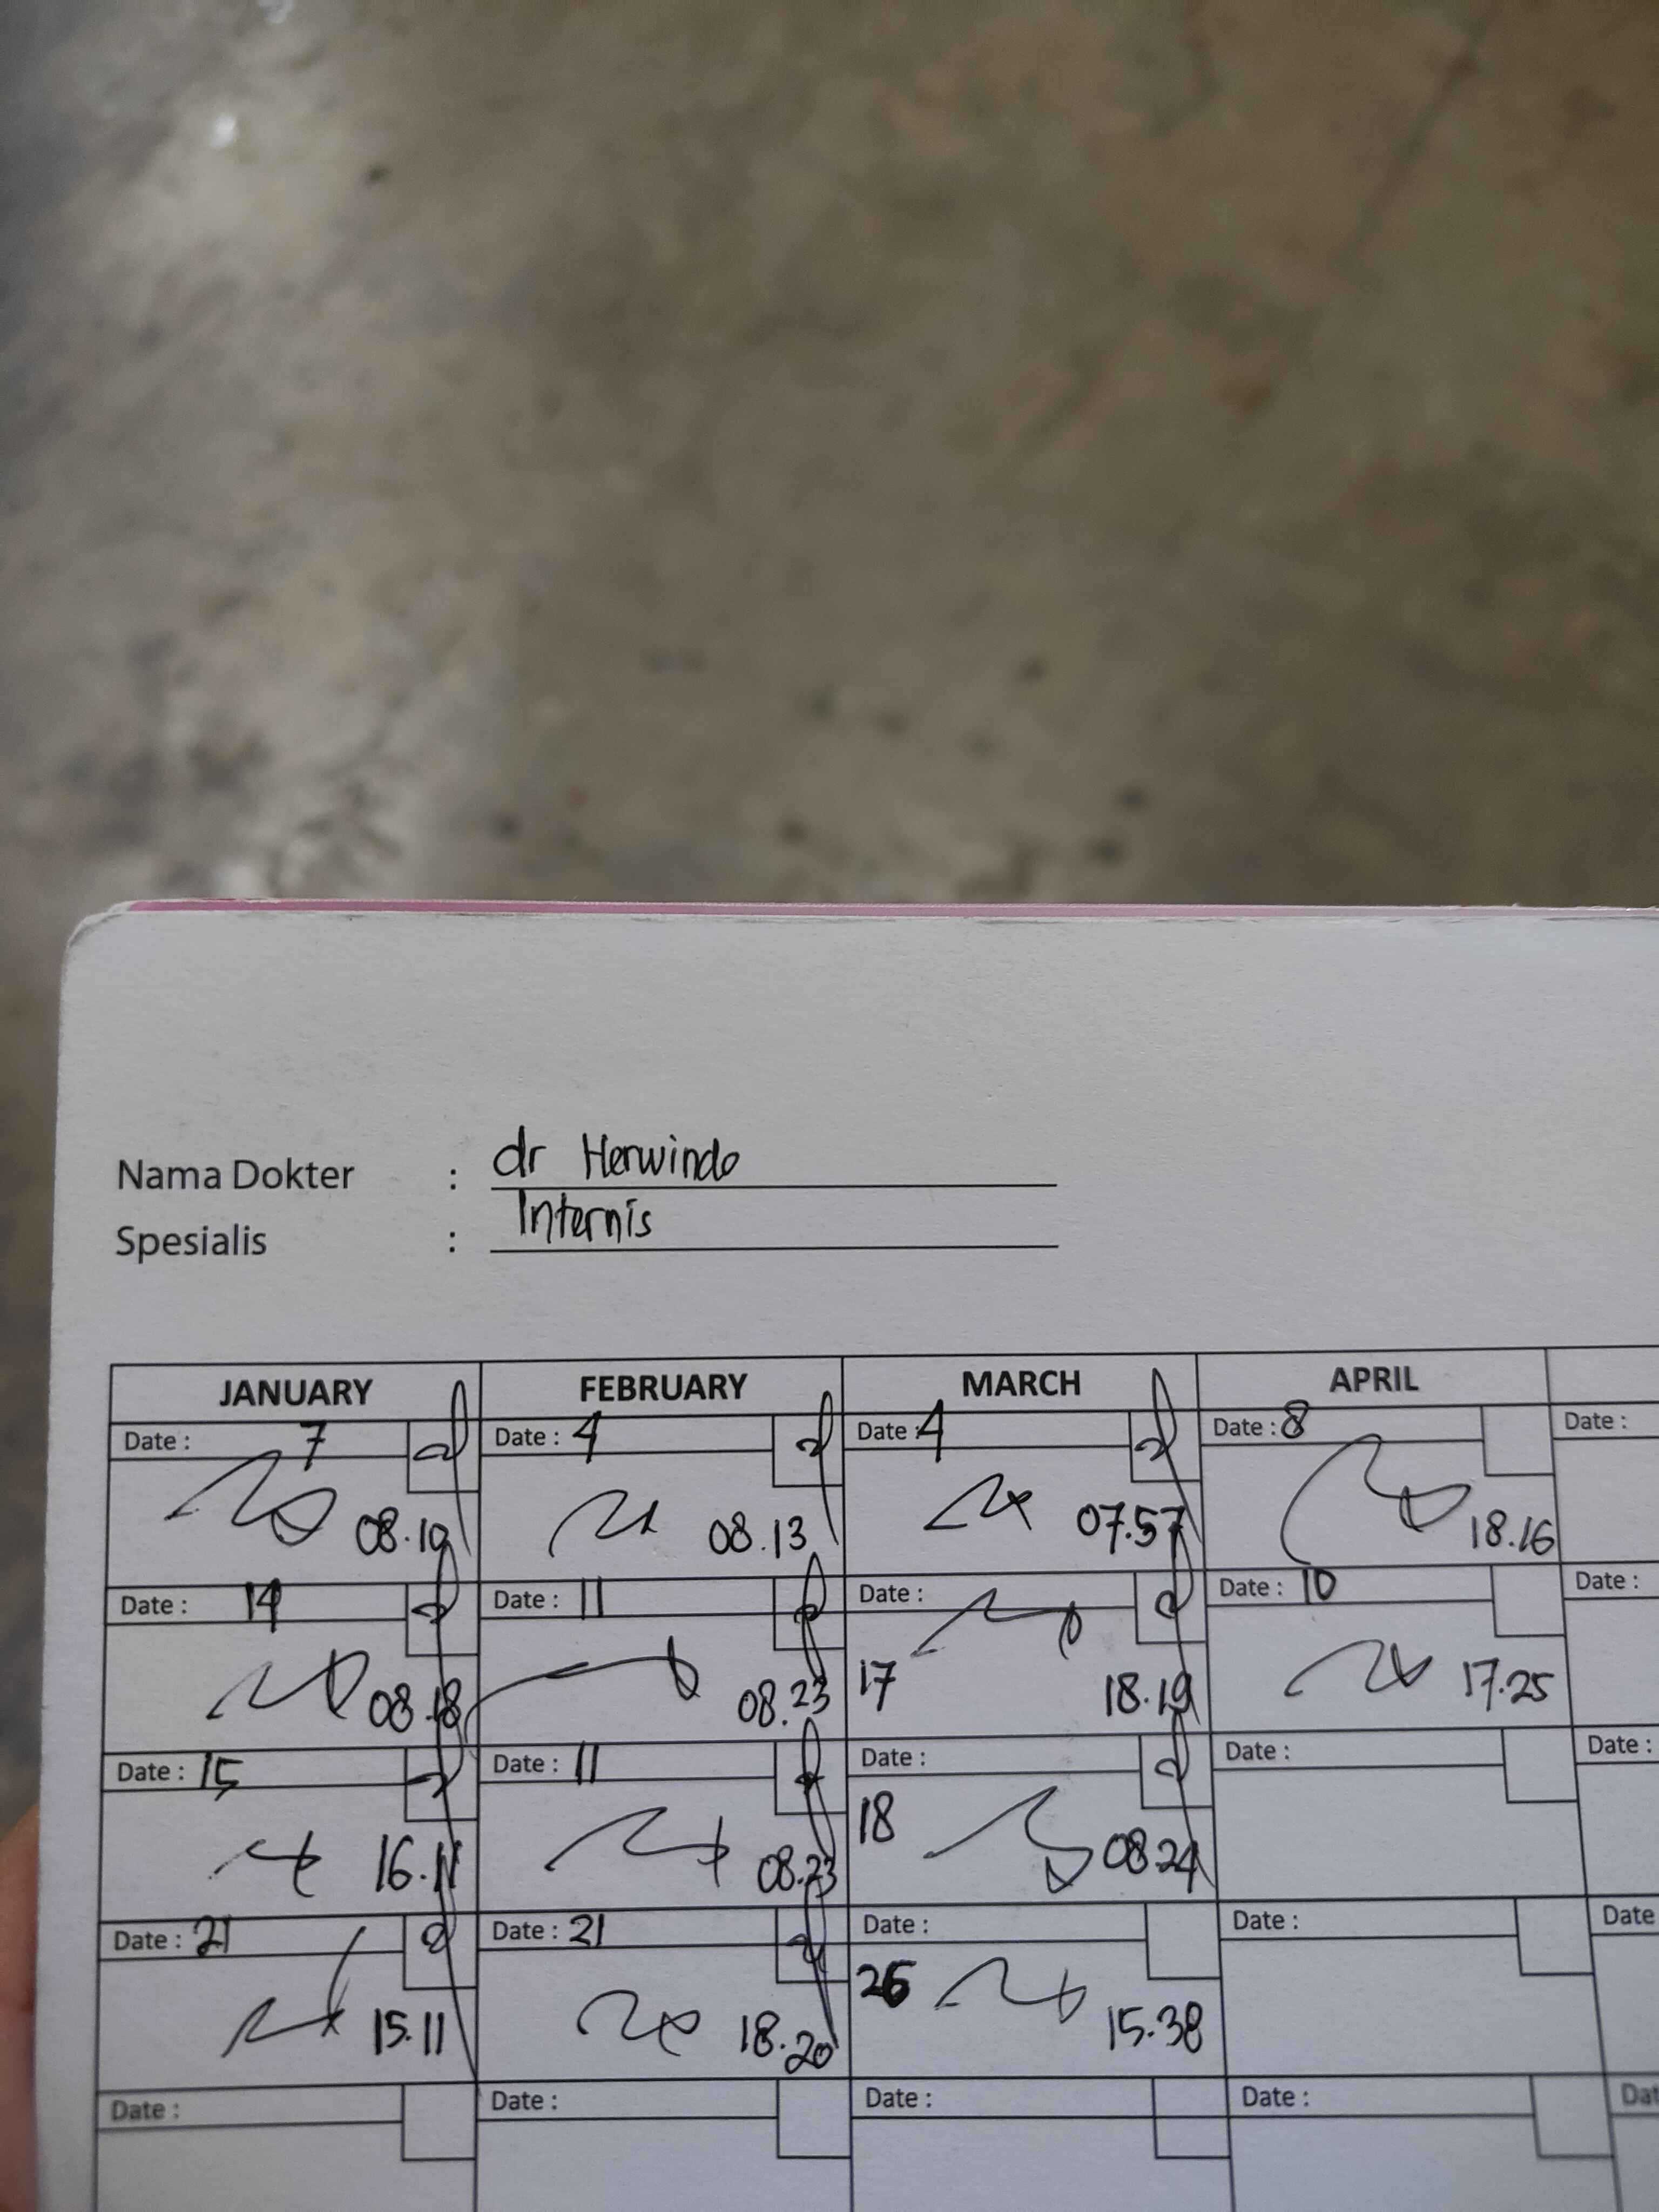 Nama Dokter : dr Herwindo
Spesialis : Internis
JANUARY FEBRUARY MARCH APRIL
Date : 7 Date : 4 Date : 4 Date : 8 Date :
08.10 08.13 07.57 18.16
Date : 14 Date : 11 Date : Date : 10 Date :
08.18 08.23 17 18.19 17.25
Date : 15 Date : 11 Date : Date : Date :
16.11 08.23 18 08.24
Date : 21 Date : 21 Date : Date : Date
15.11 18.20 26 15.38
Date : Date : Date : Date : Dat